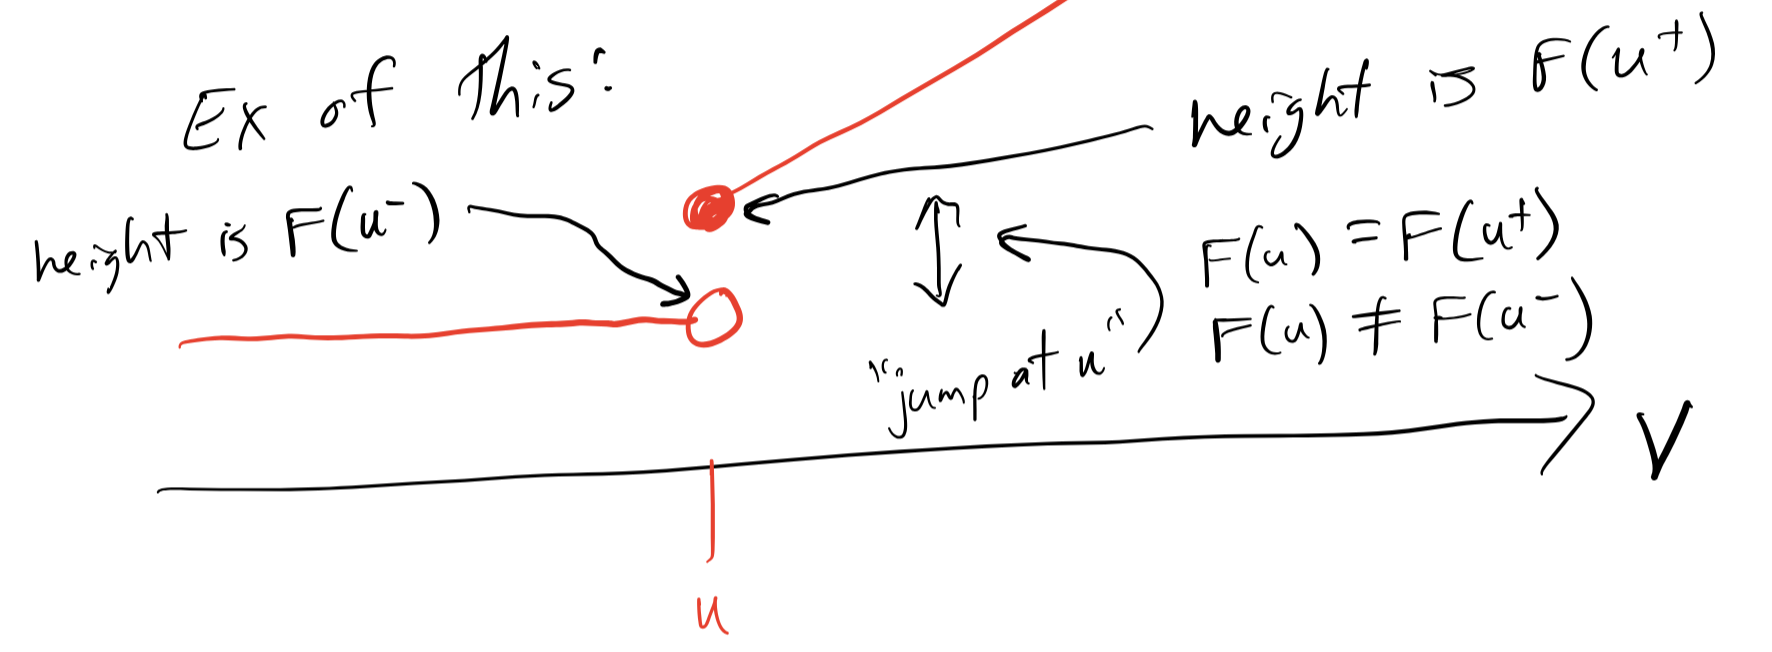 Ex of this:
height is F(u⁺)
height is F(u⁻)
F(u) = F(u⁺)
F(u) ≠ F(u⁻)
"jump at u"
V
u